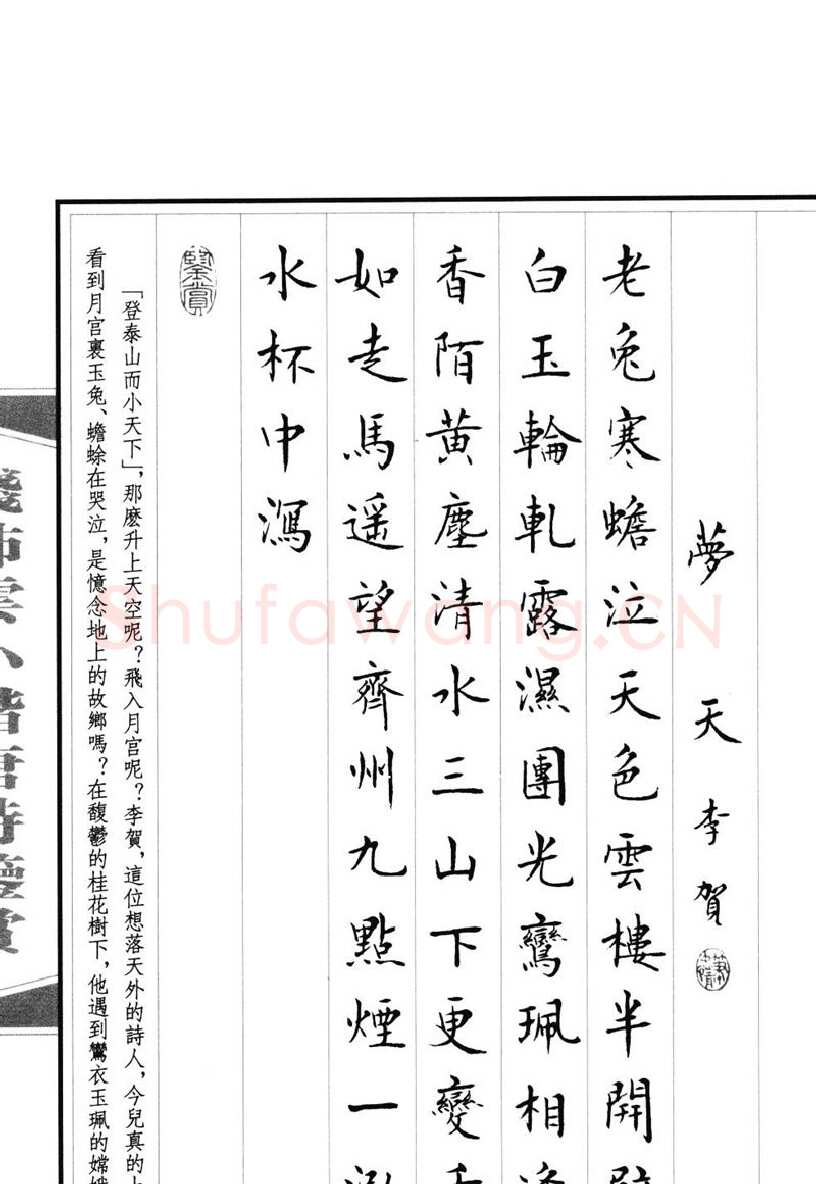 夢天 李賀
老兔寒蟾泣天色雲樓半開壁
白玉輪軋露濕團光鸞珮相逢
香陌黃塵清水三山下更變千
如走馬遥望齊州九點煙一泓
水杯中瀉
鑒賞
「登泰山而小天下」，那麼升上天空呢？飛入月宫呢？李賀，這位想落天外的詩人，今兒真的上
看到月宫裏玉兔、蟾蜍在哭泣，是憶念地上的故鄉嗎？在馥鬱的桂花樹下，他遇到鸞衣玉珮的嫦娥
小楷唐詩鑒賞
Shufawang.CN